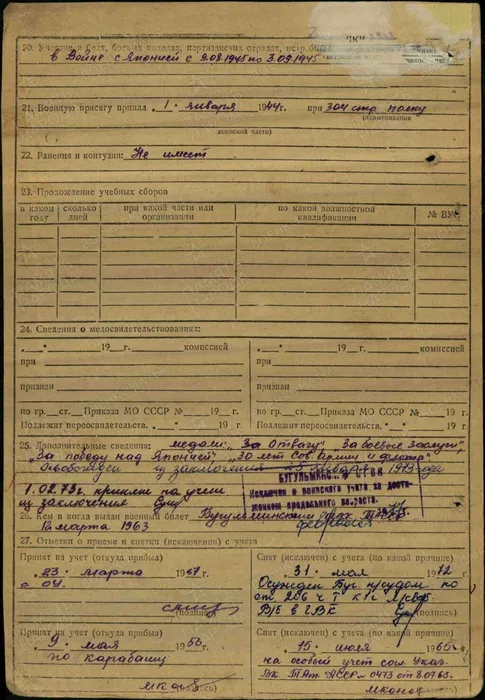 20. Участие в боях, боевых походах, партизанских отрядах,
в Войне с Японией с 9.08.1945 по 3.09.1945
21. Военную присягу принял „ 1 " января 1944 г. при 304 стр. полку
(наименование
воинской части)
22. Ранения и контузии: Не имеет
23. Прохождение учебных сборов
в каком году
сколько дней
при какой части или организации
по какой должностной квалификации
№ ВУС
24. Сведения о медосвидетельствованиях:
„ " 19 г. комиссией
при
признан
по гр. ст. Приказа МО СССР № 19 г.
Подлежит переосвидетельств. 19 г.
„ " 19 г. комиссией
при
признан
по гр. ст. Приказа МО СССР № 19 г.
Подлежит переосвидетельств. 19 г.
25. Дополнительные сведения: медали „За Отвагу", „За боевые заслуги",
„За победу над Японией", „30 лет Сов Армии и флота"
из заключения 1973 года
1.02.73г. принят на учет
из заключения
Исключен с воинского учета за дости-
жением предельного возраста.
26. Кем и когда выдан военный билет Бугульминским
12 марта 1963
27. Отметки о приеме и снятии (исключении) с учета
Принят на учет (откуда прибыл)
„ 23 " марта 1967 г.
(подпись)
Снят (исключен) с учета (по какой причине)
„ 31 " мая 1972
Осужден Буг. нусудом по
ст. 206 ч I
(подпись)
Принят на учет (откуда прибыл)
„ 9 " мая 1956 г.
по Карабашу
Снят (исключен) с учета (по какой причине)
„ 15 " июля 1965 г.
на особый учет согл. Указ.
ВК ТАт АССР № 0473 от 8.0765.